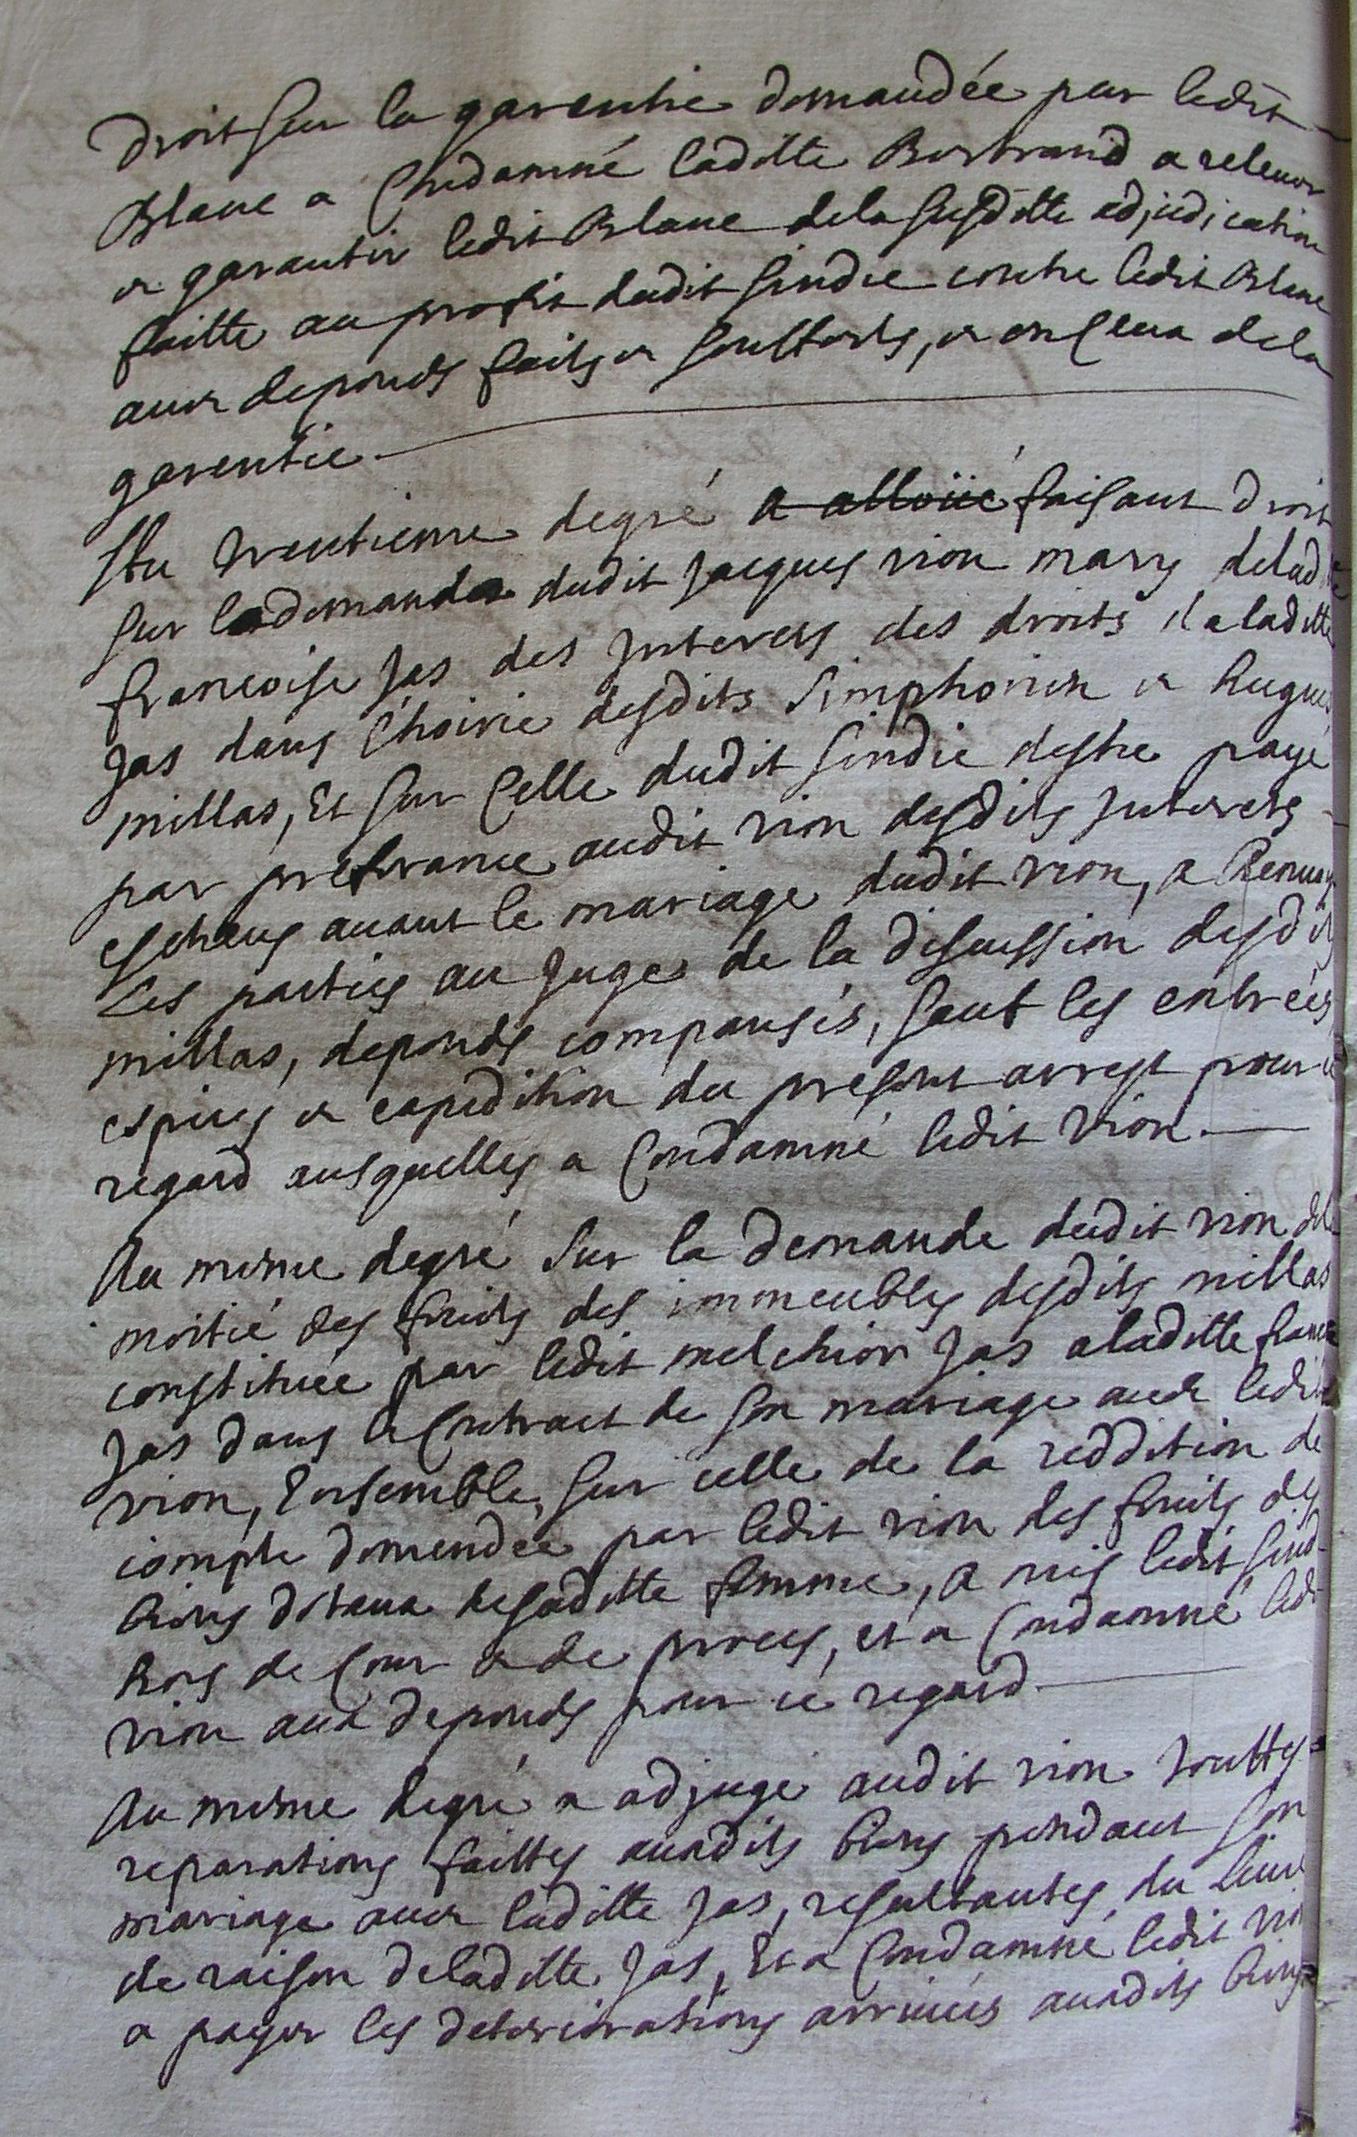 droit sur la garentie demandée par ledit
Blanc a Condamné laditte Bertrand a relever
et garantir ledit Blanc de la susditte adjudication
faitte au profit dudit sindic contre ledit Blanc
avec depends faits et soufferts, et en ceux de la
garentie
Au trentieme degré a alloüé faisant droit
sur la demande dudit jacques vion mary de lad
francoise jas des jnterets des droits de laditte
jas dans l'hoirie desdits simphorien et hugues
millas, Et sur Celle dudit sindic destre payé
par preferance audit vion desdits jnterets
escheus avant le mariage dudit vion, a Renvoyé
Les parties au juge de la discussion desdits
millas, depends compansés, sauf les entrées
espices et expedition du present arrest pour ce
regard ausquelles a Condamné ledit vion
Au mesme degré sur la demande dudit vion de
moitié des fruits des immeubles desdits millas
constituée par ledit melchior jas a laditte
jas dans le Contract de son mariage avec ledit
vion, Ensemble sur celle de la reddition de
compte demendée par ledit vion des fruits des
biens dotaux de saditte femme, a mis ledit sindic
hors de Cour et de proces, et a Condamné ledit
vion aux depends pour ce regard
Au mesme degré a adjugé audit vion touttes
reparations faittes auxdits biens pendant son
mariage avec laditte jas, resultantes du livre
de raison de laditte jas, Et a Condamné ledit vion
a payer les deteriorations arrivées auxdits biens